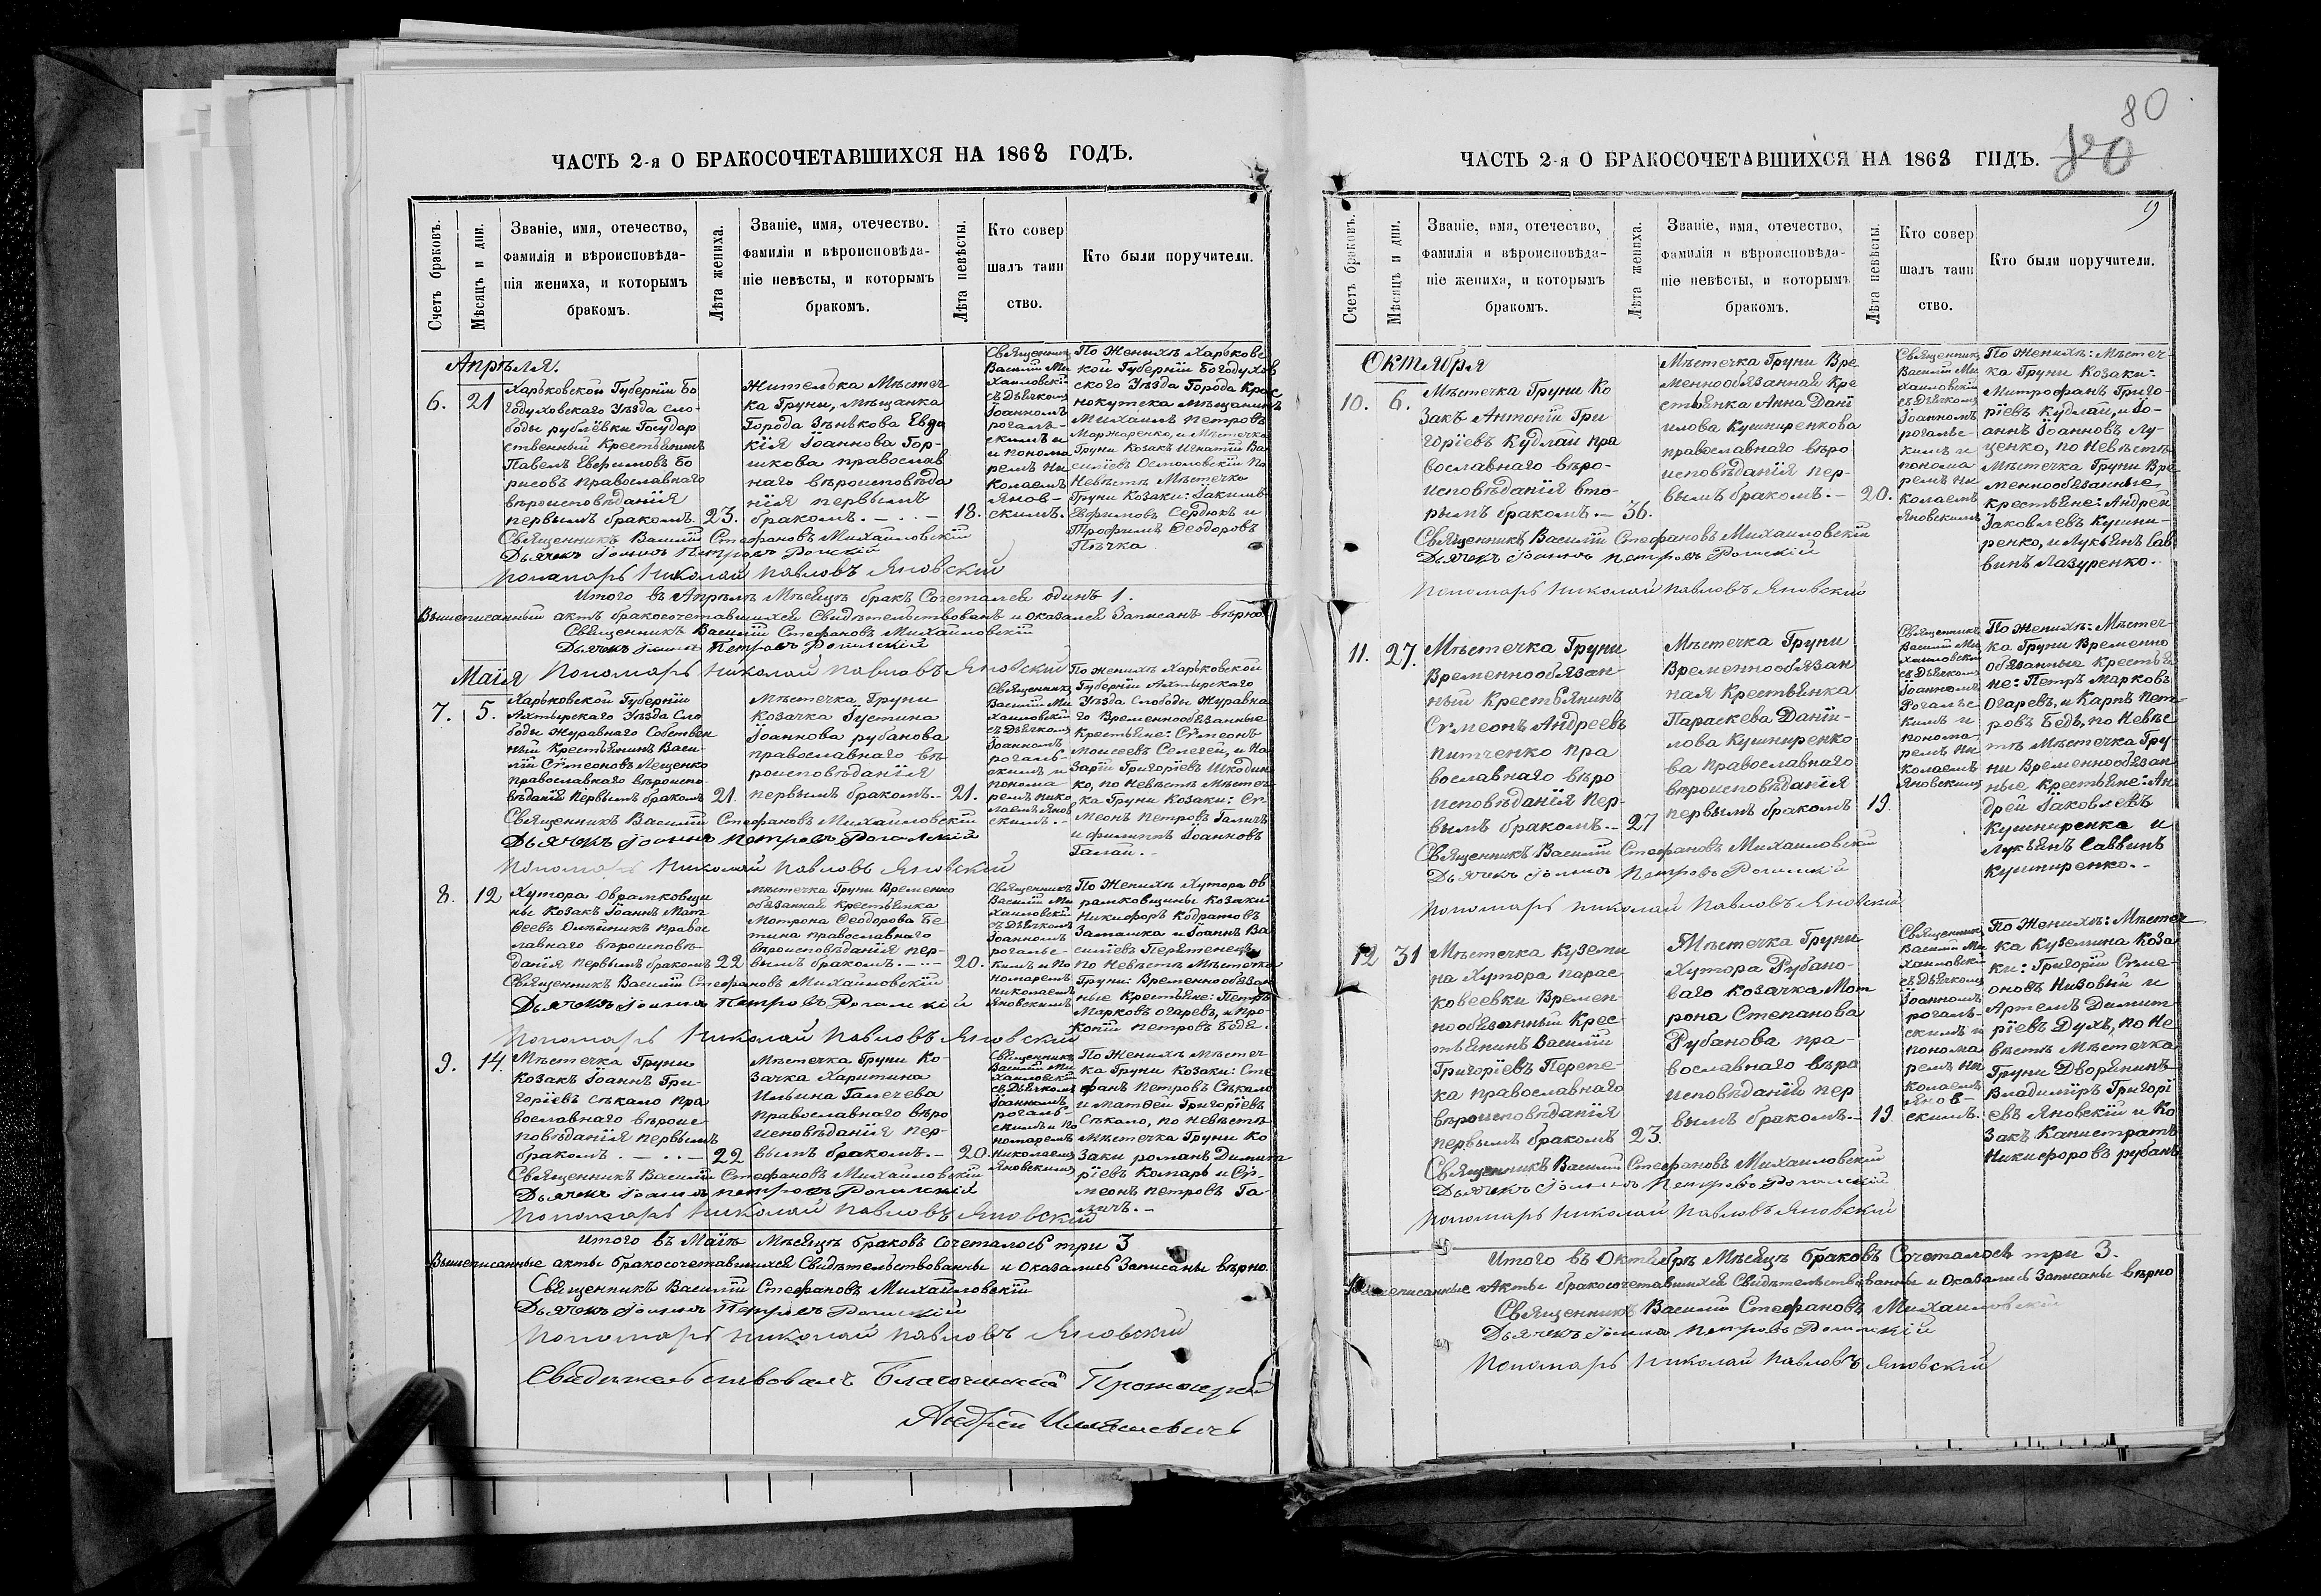 ЧАСТЬ 2-я О БРАКОСОЧЕТАВШИХСЯ НА 1868 ГОДЪ.
Счетъ браковъ.
Мѣсяцъ и дни.
Званіе, имя, отечество,
фамилія и вѣроисповѣда-
нія жениха, и которымъ
бракомъ.
Лѣта жениха.
Званіе, имя, отечество.
фамилія и вѣроисповѣда-
ніе невѣсты, и которымъ
бракомъ.
Лѣта невѣсты.
Кто совер
шалъ таин
ство.
Кто были поручители.
Апрѣля.
6. 21
Харьковской Губерніи Бо
годуховскаго Уѣзда Сло-
боды рублёвки Государ
ственный Крестьянинъ
Павелъ Евфимовъ Бо
рисовъ православнаго
вѣроисповѣданія
первымъ бракомъ. 23.
Жителька Мѣстеч
ка Груни, мѣщанка
Города Зѣнькова Евдо
кія Іоаннова Гор-
шкова православ
наго вѣроисповѣда
нія первымъ
бракомъ. — 18.
Священникъ
Василій Ми
хаиловскій
съ Дьячкомъ
Іоанномъ
рогаль-
скимъ и
и понома
ремъ Ни
колаемъ
Янов-
скимъ.
По Женихѣ Харьковс
кой Губерніи Богодухов
ского Уѣзда Города Крас
нокутска мѣщанинъ
Михаилъ Петровъ
Маржаренко, и Мѣстечка
Груни Козакъ Игнатій Ва
силіевъ Осмоловскій По
Невѣстѣ Мѣстечка
Груни Козаки: Іакимъ
Евфимовъ Сердюкъ и
Трофимъ Ѳеодоровъ
Пѣчка
Священникъ Василій Стефановъ Михаиловскій
Дьячекъ Іоаннъ Петровъ Рогальскій
Пономарь Николай Павловъ Яновскій
Итого въ Апрѣлѣ Мѣсяцѣ бракъ Сочетался одинъ 1.
Вышеписанный актъ бракосочетавшихся Свидѣтельствованъ и оказался Записанъ вѣрно.
Священникъ Василій Стефановъ Михаиловскій
Дьячекъ Іоаннъ Петровъ Рогальскій
Пономарь Николай Павловъ Яновскій
Маія
7. 5.
Харьковской Губерніи
Ахтырскаго Уѣзда Сло
боды Журавнаго Собствен
ный Крестьянинъ Васи-
лій Сѵмеоновъ Лещенко
православнаго вѣроиспо-
вѣданія первымъ бракомъ 21.
Мѣстечка Груни
Козачка Іустина
Іоаннова рубанова
православнаго вѣ
роисповѣданія
первымъ бракомъ.— 21.
Священникъ
Василій Ми
хаиловскій
съ Дьячкомъ
Іоанномъ
рогаль-
скимъ и
понома
ремъ Нико
лаемъ Янов
скимъ.—
По женихѣ Харьковской
Губерніи Ахтырскаго
Уѣзда Слободы Журавна
го Временнообязанные
Крестьяне: Сѵмеонъ
Моисеевъ Селегей, и На
зарій Григоріевъ Шкодин
ко, по Невѣстѣ Мѣстеч
ка Груни Козаки: Сѵ
меонъ Петровъ Галичъ
и филиппъ Іоанновъ
Галай.—
Священникъ Василій Стефановъ Михаиловскій
Дьячекъ Іоаннъ Петровъ Рогальскій
Пономарь Николай Павловъ Яновскій
8. 12
Хутора Оврамковщи
ны Козакъ Іоаннъ Мат
ѳеевъ Олѣйникъ право
славнаго вѣроисповѣ-
данія первымъ бракомъ 22
Мѣстечка Груни Временно
обязанная Крестьянка
Матрона Ѳеодорова Бе
тина православнаго
вѣроисповѣданія пер-
вымъ бракомъ. — 20.
Священникъ
Василій Ми
хаиловскій
съ Дьячкомъ
Іоанномъ
рогальс
кимъ и По
номаремъ
Николаемъ
Яновскимъ
По Женихѣ Хутора Ов
рамковщины Козаки
Никифоръ Кодратовъ
Замашка и Іоаннъ Ва
силіевъ Перятенецъ,
по Невѣстѣ Мѣстечка
Груни: Временнообязан
ные Крестьяне: Петръ
Марковъ огаревъ, и Про-
копій петровъ Бедя.
Священникъ Василій Стефановъ Михаиловскій
Дьячекъ Іоаннъ Петровъ Рогальскій
Пономарь Николай Павловъ Яновскій
9. 14.
Мѣстечка Груни
Козакъ Іоаннъ Гри-
горіевъ Сѣкало пра
вославнаго вѣроис
повѣданія первымъ
бракомъ. — 22
Мѣстечка Груни Ко-
зачка Харитина
Ильина Галечева
православнаго вѣро
исповѣданія пер-
вымъ бракомъ.— 20.
Священникъ
Василій Ми
хаиловскій
съ Дьячкомъ
Іоанномъ
рогаль-
скимъ и По
номаремъ
Николаемъ
Яновскимъ
По Женихѣ Мѣстеч
ка Груни Козаки: Сте
фанъ Петровъ Сѣкало
и Матѳей Григоріевъ
Сѣкало, по невѣстѣ
Мѣстечка Груни Ко
заки романъ Димит
ріевъ Комаръ и Сѵ-
меонъ петровъ Га-
личъ.—
Священникъ Василій Стефановъ Михаиловскій
Дьячекъ Іоаннъ Петровъ Рогальскій
Пономарь Николай Павловъ Яновскій
Итого въ Маіѣ Мѣсяцѣ браковъ Сочеталось три 3
Вышеписанные акты бракосочетавшихся Свидѣтельствованы и Оказались Записаны вѣрно.
Священникъ Василій Стефановъ Михаиловскій
Дьячекъ Іоаннъ Петровъ Рогальскій
Пономарь Николай Павловъ Яновскій
Свидѣтельствовалъ Благочинный Протоіерей
Андрей
80
ЧАСТЬ 2-я О БРАКОСОЧЕТАВШИХСЯ НА 1868 ГОДЪ.
19
Счетъ браковъ.
Мѣсяцъ и дни.
Званіе, имя, отечество,
фамилія и вѣроисповѣда-
ніе жениха, и которымъ
бракомъ.
Лѣта жениха.
Званіе, имя, отечество,
фамилія и вѣроисповѣда-
ніе невѣсты, и которымъ
бракомъ.
Лѣта невѣсты.
Кто совер
шалъ таин
ство.
Кто были поручители.
Октября
10. 6.
Мѣстечка Груни Ко
закъ Антоній Гри
горіевъ Кудлай пра
вославнаго вѣро-
исповѣданія вто-
рымъ бракомъ.— 36.
Мѣстечка Груни Вре
меннообязанная Кре
стьянка Анна Даніи
илова Кушниренкова
православнаго вѣро
исповѣданія пер-
вымъ бракомъ.— 20.
Священникъ
Василій Ми
хаиловскій
съ Дьячкомъ
Іоанномъ
рогальс-
кимъ и
понома
ремъ Ни
колаемъ
Яновскимъ
По женихѣ: Мѣстеч-
ка Груни Козаки:
Митрофанъ Григо-
ріевъ Кудлай, и Іо-
аннъ Іоанновъ Лу-
ценко, по Невѣстѣ
Мѣстечка Груни Вре
меннообязанные
крестьяне: Андрей
Іаковлевъ Кушни-
ренко, и Лукьянъ Сав
винъ Лазуренко.
Священникъ Василій Стефановъ Михаиловскій
Дьячекъ Іоаннъ Петровъ Рогальскій
Пономарь Николай Павловъ Яновскій
11. 27.
Мѣстечка Груни
Временнообязан-
ный Крестьянинъ
Сѵмеонъ Андреевъ
Питченко пра
вославнаго вѣро
исповѣданія пер-
вымъ бракомъ.— 27
Мѣстечка Груни
Временнообязан
ная Крестьянка
Параскева Даніи-
лова Кушниренко
ва православнаго
вѣроисповѣданія
первымъ бракомъ 19.
Священникъ
Василій Ми
хаиловскій
съ Дьячкомъ
Іоанномъ
Рогальс
кимъ и
понома-
ремъ Ни
колаемъ
Яновскимъ
По Женихѣ: Мѣстеч-
ка Груни Временно
обязанные Крестья
не: Петръ Марковъ
Огаревъ, и Карпъ Пет-
ровъ Бедь, по Невѣс
тѣ Мѣстечка Гру
ни Временнообязан
ные крестьяне: Ан
дрей Іаковлевъ
Кушниренка и
Лукьянъ Саввинъ
Кушниренко.—
Священникъ Василій Стефановъ Михаиловскій
Дьячекъ Іоаннъ Петровъ Рогальскій
Пономарь Николай Павловъ Яновскій
12 31
Мѣстечка Куземи
на Хутора парас
ковеевки Времен
нообязанный Крес
тьянинъ Василій
Григоріевъ Перепе-
ка православнаго
вѣроисповѣданія
первымъ бракомъ 23.
Мѣстечка Груни
Хутора Рубано-
ваго Козачка Мот
рона Степанова
Рубанова пра-
вославнаго вѣро
исповѣданія пер
вымъ бракомъ.— 19.
Священникъ
Василій Ми
хаиловскій
съ Дьячкомъ
Іоанномъ
рогаль-
скимъ и
понома
ремъ Ни
колаемъ
Янов-
скимъ.
По Женихѣ: Мѣстеч
ка Куземина Коза
ки: Григорій Сѵме-
оновъ Низовый и
Артемъ Димит
ріевъ Духъ, по Не
вѣстѣ Мѣстечка
Груни Дворянинъ
Владиміръ Григорі
евъ Яновскій и Ко
закъ Калистратъ
Никифоровъ рубанъ
Священникъ Василій Стефановъ Михаиловскій
Дьячекъ Іоаннъ Петровъ Рогальскій
Пономарь Николай Павловъ Яновскій
Итого въ Октябрѣ Мѣсяцѣ браковъ Сочеталось три 3.
Вышеписанные Акты бракосочетавшихся Свидѣтельствованны и Оказались Записаны вѣрно
Священникъ Василій Стефановъ Михаиловскій
Дьячекъ Іоаннъ Петровъ Рогальскій
Пономарь Николай Павловъ Яновскій